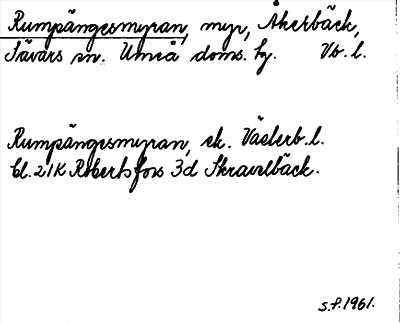 Rumpängesmyran, myr, Åkerbäck,
Sävars sn. Umeå doms. hg. Vb. l.
Rumpängesmyran, ek. Västerb. l.
bl. 21K Robertsfors 3d Skravelbäck.
S.F. 1961.